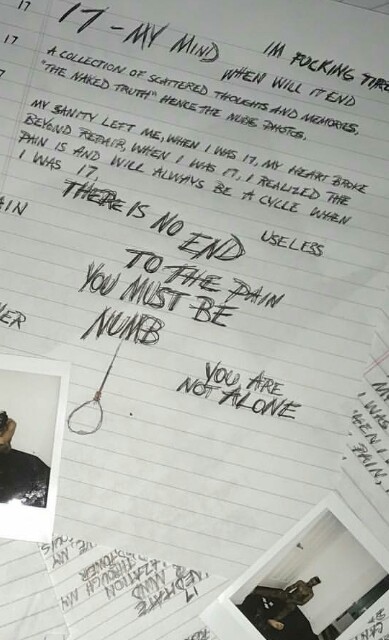 17
17
17 - MY MIND
IM FUCKING TIRE
WHEN WILL IT END
A COLLECTION OF SCATTERED THOUGHTS AND MEMORIES,
"THE NAKED TRUTH" HENCE THE NUDE PHOTOS.
MY SANITY LEFT ME, WHEN I WAS 17, MY HEART BROKE
BEYOND REPAIR, WHEN I WAS 17, I REALIZED THE
PAIN IS AND WILL ALWAYS BE A CYCLE WHEN
I WAS 17,
THERE IS NO END
USELESS
AIN
TO THE PAIN
YOU MUST BE
NUMB
YOU ARE
NOT ALONE
I WAS
PAIN,
17
MIND
THROUGH MY